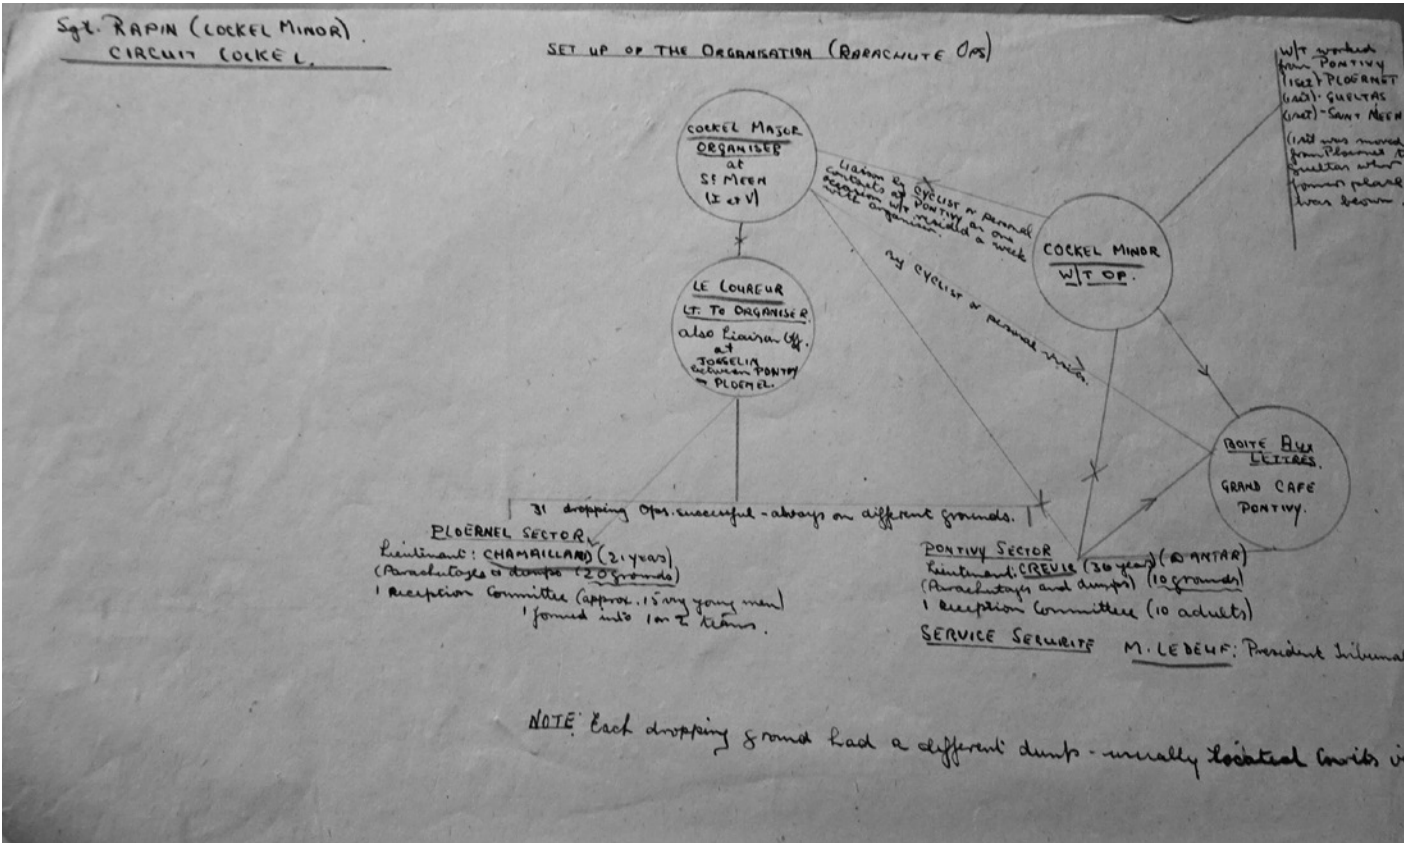 Sgt. RAPIN (COCKEL MINOR).
CIRCUIT COCKEL.
SET UP OF THE ORGANISATION (PARACHUTE OPS)
W/T worked
from PONTIVY
(1set) PLOERMEL
(1set) - GUELTAS
(1set) - SAINT MEEN
(1set was moved
from Ploermel t
Gueltas when
former place
was
COCKEL MAJOR
ORGANISER
at
ST MEEN
(I et V)
Liaison by CYCLIST or personal
contacts at PONTIVY on one
occasion W/T resided a week
with organiser.
COCKEL MINOR
W/T OP.
by CYCLIST or personal visits.
LE COUREUR
LT. TO ORGANISER
also Liaison Off.
at
JOSSELIN
between PONTIVY
- PLOEMEL.
BOITE AUX
LETTRES.
GRAND CAFE
PONTIVY.
31 dropping Ops. successful - always on different grounds.
PLOERMEL SECTOR
Lieutenant: CHAMAILLARD (21 years)
(Parachutages & dumps (20 grounds)
1 Reception Committee (approx. 15 very young men)
formed into 1 or 2 teams.
PONTIVY SECTOR
Lieutenant: CREVIC (30 years) (D'ANTAR)
(Parachutages and dumps) (10 grounds)
1 Reception Committee (10 adults)
SERVICE SECURITE M. LEDEUF: President Tribunal
NOTE: Each dropping ground had a different dump - usually located